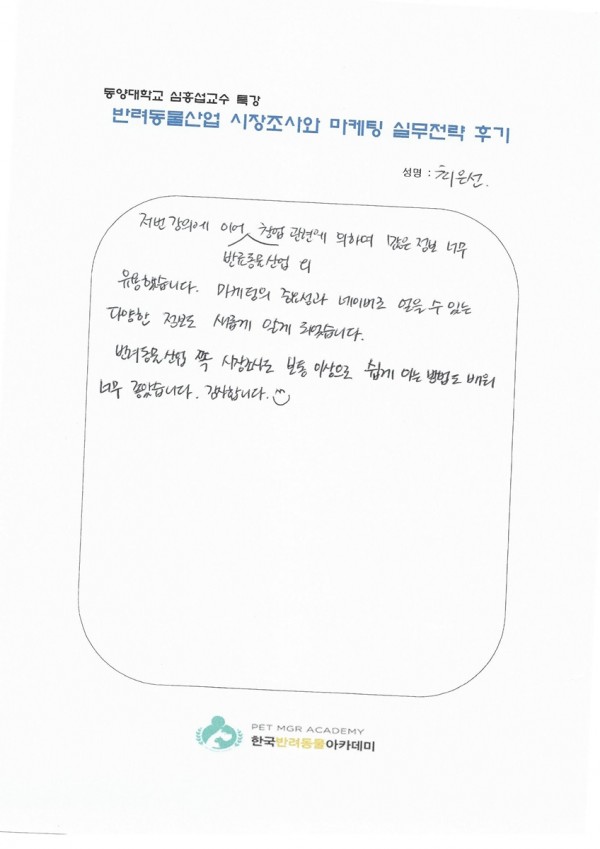 동양대학교 심홍섭교수 특강
반려동물산업 시장조사와 마케팅 실무전략 후기
성명 : 최은선.
저번 강의에 이어 창업 관련에 의하여 많은 정보 너무
반료동물산업 의
유용했습니다. 마케팅의 중요성과 네이버로 얻을 수 있는
다양한 정보도 새롭게 알게 되었습니다.
반려동물산업 쪽 시장조사도 보통 이상으로 쉽게 아는 방법도 배워
너무 좋았습니다. 감사합니다.
PET MGR ACADEMY
한국반려동물아카데미